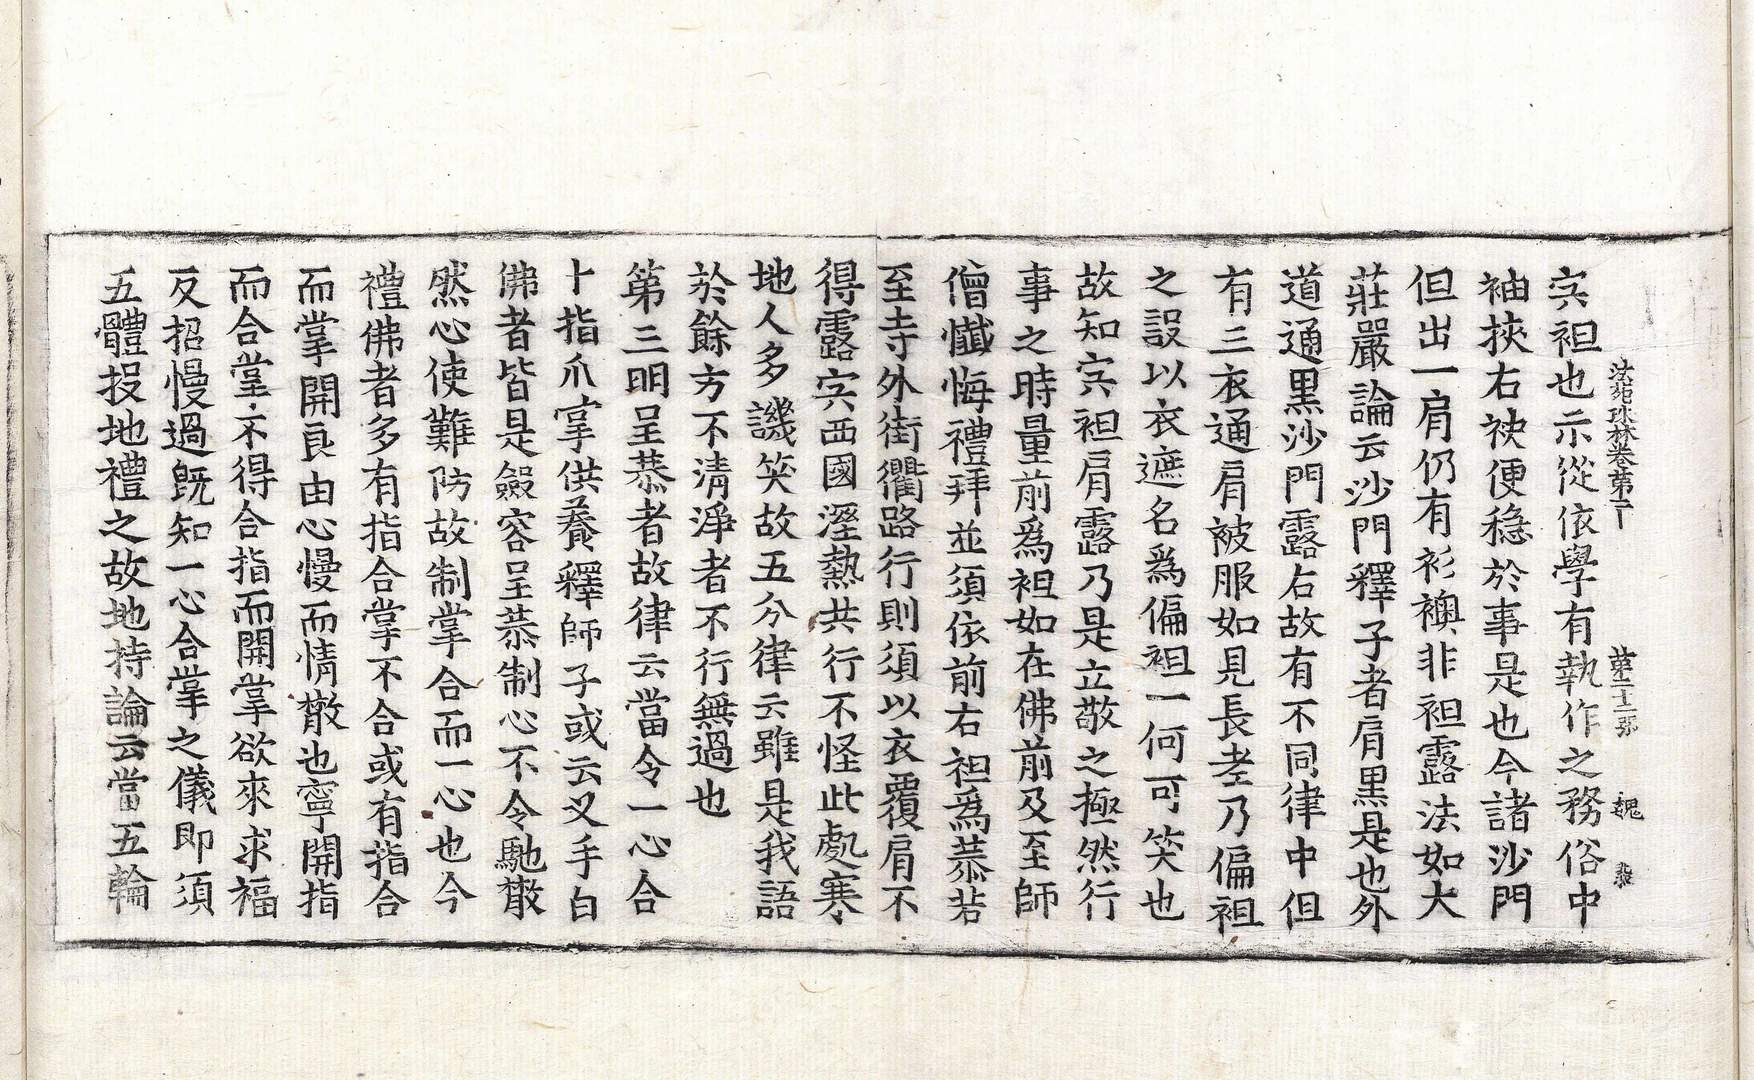 法苑珠林卷第二十　第二十二張　魏　恭
肉袒也示從依學有執作之務俗中
袖挾右袂便穩於事是也今諸沙門
但出一肩仍有衫襖非袒露法如大
莊嚴論云沙門釋子者肩黑是也外
道通黑沙門露右故有不同律中但
有三衣通肩被服如見長老乃偏袒
之設以衣遮名爲偏袒一何可笑也
故知肉袒肩露乃是立敬之極然行
事之時量前爲袒如在佛前及至師
僧懺悔禮拜並須依前右袒爲恭若
至寺外街衢路行則須以衣覆肩不
得露肉西國溼熱共行不怪此處寒
地人多譏笑故五分律云雖是我語
於餘方不清淨者不行無過也
第三明呈恭者故律云當令一心合
十指爪掌供養釋師子或云叉手白
佛者皆是斂容呈恭制心不令馳散
然心使難防故制掌合而一心也今
禮佛者多有指合掌不合或有指合
而掌開良由心慢而情散也寧開指
而合掌不得合指而開掌欲來求福
反招慢過旣知一心合掌之儀即須
五體投地禮之故地持論云當五輪